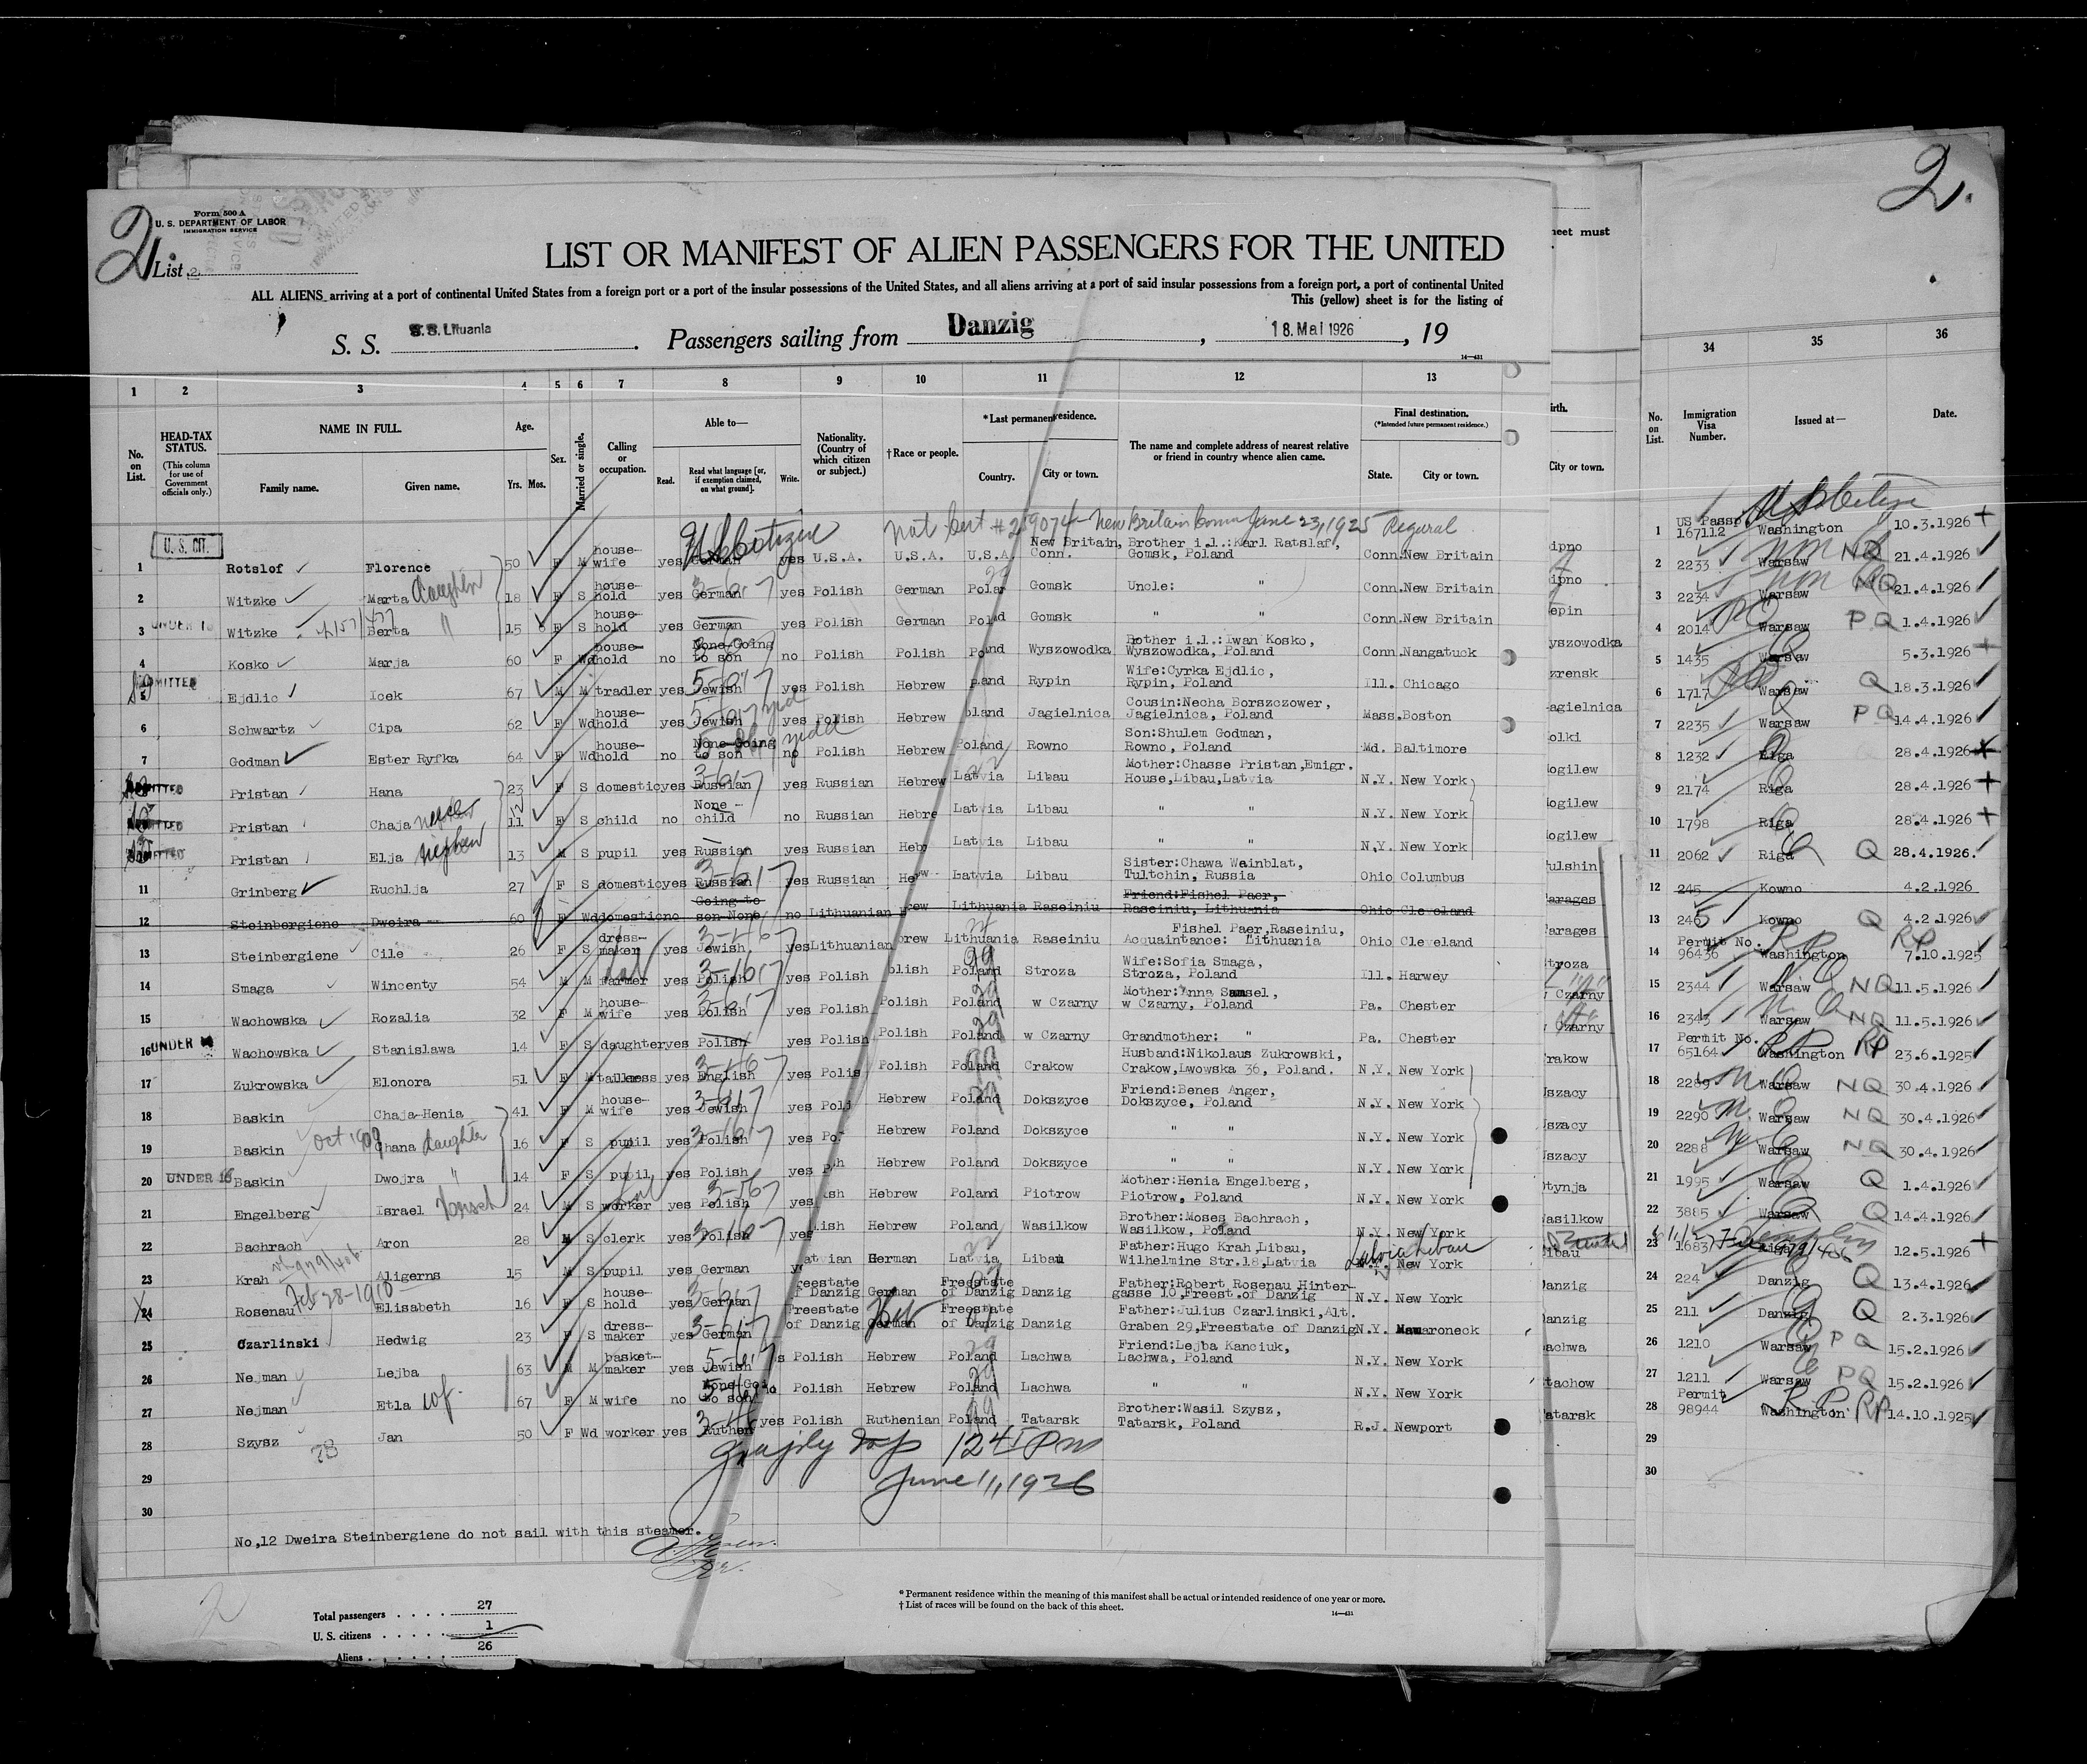 2.
Form 500 A
U. S. DEPARTMENT OF LABOR
IMMIGRATION SERVICE
2
List 2
LIST OR MANIFEST OF ALIEN PASSENGERS FOR THE UNITED
ALL ALIENS arriving at a port of continental United States from a foreign port or a port of the insular possessions of the United States, and all aliens arriving at a port of said insular possessions from a foreign port, a port of continental United
This (yellow) sheet is for the listing of
S. S. S.S. Lituania. Passengers sailing from Danzig, 18. Mai 1926, 19
14—431
1 2 3 4 5 6 7 8 9 10 11 12 13
No. on List.
HEAD-TAX STATUS.
(This column for use of Government officials only.)
NAME IN FULL.
Family name. Given name.
Age.
Yrs. Mos.
Sex.
Married or single.
Calling or occupation.
Able to—
Read. Read what language [or, if exemption claimed, on what ground]. Write.
Nationality. (Country of which citizen or subject.)
† Race or people.
* Last permanent residence.
Country. City or town.
The name and complete address of nearest relative or friend in country whence alien came.
Final destination.
(*Intended future permanent residence.)
State. City or town.
U.S. citizen Nat Cert # 2159074 New Britain Conn June 23, 1925
U. S. CIT.
1 Rotslof Florence 50 F M house-wife yes German yes U.S.A. U.S.A. U.S.A. New Britain, Conn. Brother i.l.:Karl Ratslaf, Gomsk, Poland Conn. New Britain
2 Witzke Marta daughter 18 F S house-hold yes German yes Polish German Poland Gomsk Uncle: " Conn. New Britain
3 UNDER 16 Witzke Berta " 15 6 F S house-hold yes German yes Polish German Poland Gomsk " " Conn. New Britain
4 Kosko Marja 60 F Wd house-hold no None-Going to son no Polish Polish Poland Wyszowodka Bother i.l.:Iwan Kosko, Wyszowodka, Poland Conn. Nangatuck
5 ADMITTED Ejdlic Icek 67 M M tradler yes Jewish yes Polish Hebrew Poland Rypin Wife:Cyrka Ejdlic, Rypin, Poland Ill. Chicago
6 Schwartz Cipa 62 F Wd house-hold yes Jewish yes Polish Hebrew Poland Jagielnica Cousin:Necha Borszczower, Jagielnica, Poland Mass. Boston
7 Godman Ester Ryfka 64 F Wd house-hold no None-Going to son no Polish Hebrew Poland Rowno Son:Shulem Godman, Rowno, Poland Md. Baltimore
ADMITTED Pristan Hana 23 F S domestic yes Russian yes Russian Hebrew Latvia Libau Mother:Chasse Pristan,Emigr. House,Libau,Latvia N.Y. New York
ADMITTED Pristan Chaja 11 F S child no None - child no Russian Hebre Latvia Libau " " N.Y. New York
ADMITTED Pristan Elja nephew 13 M S pupil yes Russian yes Russian Heb Latvia Libau " " N.Y. New York
11 Grinberg Ruchlja 27 F S domestic yes Russian yes Russian Latvia Libau Sister:Chawa Wainblat, Tultchin, Russia Ohio Columbus
12 Steinbergiene Dweira 60 F Wd domestic no Going to son-None no Lithuanian rew Lithuania Raseiniu Friend:Fishel Paer, Raseiniu, Lithuania Ohio Cleveland
13 Steinbergiene Cile 26 F S dress-maker yes Jewish yes Lithuanian brew Lithuania Raseiniu Fishel Paer,Raseiniu, Acquaintance: Lithuania Ohio Cleveland
14 Smaga Wincenty 54 M M farmer yes Polish yes Polish olish Poland Stroza Wife:Sofia Smaga, Stroza, Poland Ill. Harwey
15 Wachowska Rozalia 32 F M house-wife yes Polish yes Polish Polish Poland w Czarny Mother:Anna Samsel, w Czarny, Poland Pa. Chester
16 UNDER Wachowska Stanislawa 14 F S daughter yes Polish yes Polish Polish Poland w Czarny Grandmother: " Pa. Chester
17 Zukrowska Elonora 51 F M yes English yes Polis Polish Poland Crakow Husband:Nikolaus Zukrowski, Crakow,Lwowska 36, Poland. N.Y. New York
18 Baskin Chaja-Henia 41 F M house-wife yes Jewish yes Poli Hebrew Poland Dokszyce Friend:Benes Anger, Dokszyce, Poland N.Y. New York
19 Baskin Oct 1909 Chana daughter 16 F S pupil yes Polish yes Po Hebrew Poland Dokszyce " " N.Y. New York
20 UNDER 16 Baskin Dwojra " 14 F S pupil yes Polish yes Hebrew Poland Dokszyce " " N.Y. New York
21 Engelberg Israel 24 M S worker yes Polish yes ish Hebrew Poland Piotrow Mother:Henia Engelberg, Piotrow, Poland N.Y. New York
22 Bachrach Aron 28 M S clerk yes Polish yes lish Hebrew Poland Wasilkow Brother:Moses Bachrach, Wasilkow, Poland N.Y. New York
23 Krah Aligerns 15 M S pupil yes German atvian German Latvia Libau Father:Hugo Krah,Libau, Wilhelmine Str.18,Latvia Latvia Libau New York
24 Rosenau Feb 28-1910 Elisabeth 16 F S house-hold yes German reestate f Danzig German Freestate of Danzig Danzig Father:Robert Rosenau Hinter-gasse 10,Freest.of Danzig N.Y. New York
25 Czarlinski Hedwig 23 F S dress-maker yes German Freestate of Danzig German Freestate of Danzig Danzig Father:Julius Czarlinski,Alt. Graben 29,Freestate of Danzig N.Y. Mamaroneck
26 Nejman Lejba 63 M M basket-maker yes Jewish s Polish Hebrew Poland Lachwa Friend:Lejba Kanciuk, Lachwa, Poland N.Y. New York
27 Nejman Etla wf. 67 F M wife no to son no Polish Hebrew Poland Lachwa " " N.Y. New York
28 Szysz Jan 50 F Wd worker yes Ruthen yes Polish Ruthenian Poland Tatarsk Brother:Wasil Szysz, Tatarsk, Poland R.J. Newport
29
June 11, 1926
30
No,12 Dweira Steinbergiene do not sail with this steamer.
* Permanent residence within the meaning of this manifest shall be actual or intended residence of one year or more.
† List of races will be found on the back of this sheet.
14—431
Total passengers . . . . 27
U. S. citizens . . . . . 1
Aliens . . . . . . 26
neet must
irth.
City or town.
ipno
ipno
epin
yszowodka
zrensk
agielnica
olki
ogilew
ogilew
ogilew
ulshin
arages
arages
troza
w Czarny
w Czarny
rakow
szacy
szacy
szacy
tynja
asilkow
ibau
anzig
anzig
achwa
tachow
atarsk
34 35 36
No. on List. Immigration Visa Number. Issued at— Date.
U S Citizen
1 US Passp 167112 Washington 10.3.1926
2 2233 Warsaw NQ 21.4.1926
3 2234 Warsaw NQ 21.4.1926
4 2014 Warsaw PQ 1.4.1926
5 1435 Warsaw 5.3.1926
6 1717 Warsaw Q 18.3.1926
7 2235 Warsaw PQ 14.4.1926
8 1232 Riga 28.4.1926
9 2174 Riga 28.4.1926
10 1798 Riga 28.4.1926
11 2062 Riga Q 28.4.1926.
12 245 Kowno 4.2.1926
13 246 Kowno Q 4.2.1926
14 Permit No. 96436 Washington RP 7.10.1925
15 2344 Warsaw NQ 11.5.1926
16 2343 Warsaw NQ 11.5.1926
17 Permit No. 65164 Washington RP 23.6.1925
18 2289 Warsaw NQ 30.4.1926
19 2290 Warsaw NQ 30.4.1926
20 2288 Warsaw NQ 30.4.1926
21 1995 Warsaw Q 1.4.1926
22 3885 Warsaw Q 14.4.1926
23 1683 Riga 12.5.1926
24 224 Danzig Q 13.4.1926
25 211 Danzig Q 2.3.1926
26 1210 Warsaw PQ 15.2.1926
27 1211 Warsaw PQ 15.2.1926
28 Permit 98944 Washington RP 14.10.1925
29
30